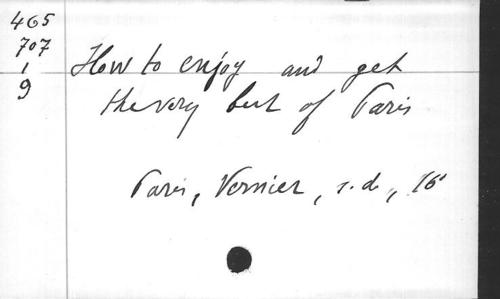 465
707
1
9
How to enjoy and get
the very best of Paris
Paris, Vernier, s.d., 16°